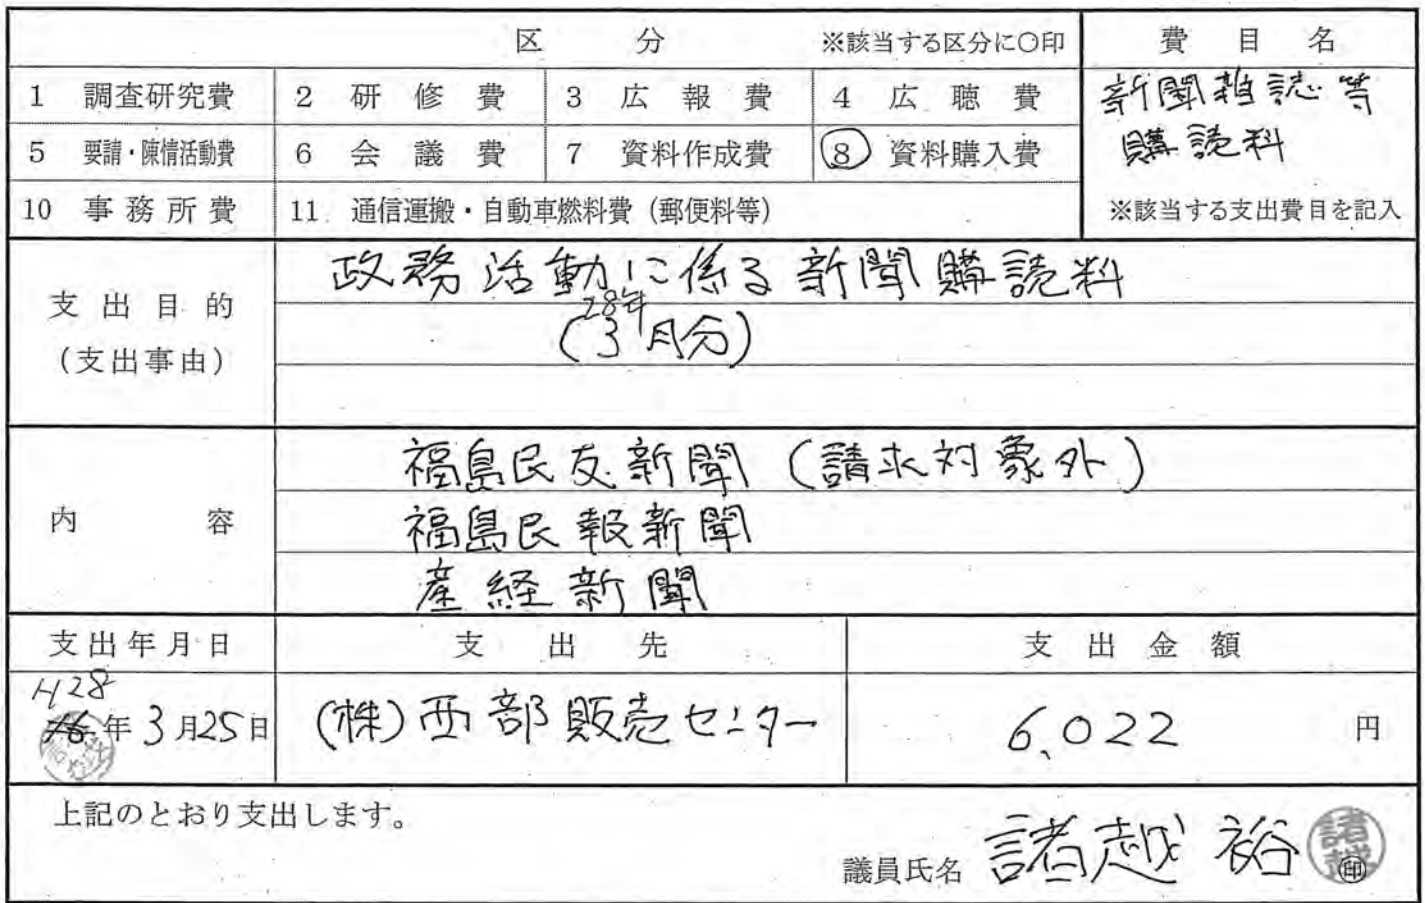 区 分 ※該当する区分に○印 費 目 名
1 調査研究費 2 研 修 費 3 広 報 費 4 広 聴 費 新聞雑誌等
5 要請・陳情活動費 6 会 議 費 7 資料作成費 8 資料購入費 購読料
10 事務所費 11 通信運搬・自動車燃料費（郵便料等） ※該当する支出費目を記入
支出目的
（支出事由）
政務活動に係る新聞購読料
28年
（3月分）
内 容
福島民友新聞（請求対象外）
福島民報新聞
産経新聞
支出年月日 支 出 先 支 出 金 額
H28
年3月25日 （株）西部販売センター 6,022 円
上記のとおり支出します。
議員氏名 諸越 裕 諸越 印